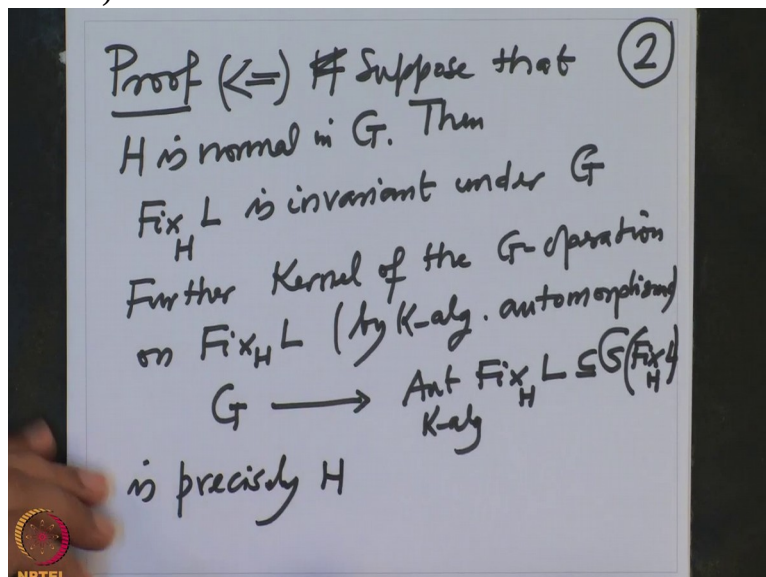 Proof (<=) Suppose that ②
H is normal in G. Then
Fix_H L is invariant under G
Further Kernel of the G-operation
on Fix_H L (by K-alg. automorphism)
G ⟶ Aut_{K-alg} Fix_H L ⊆ G(Fix_H L)
is precisely H
NPTEL